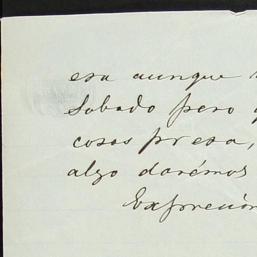 esa aunque
Sabado pero
cosas presa,
algo darémos
Expresion